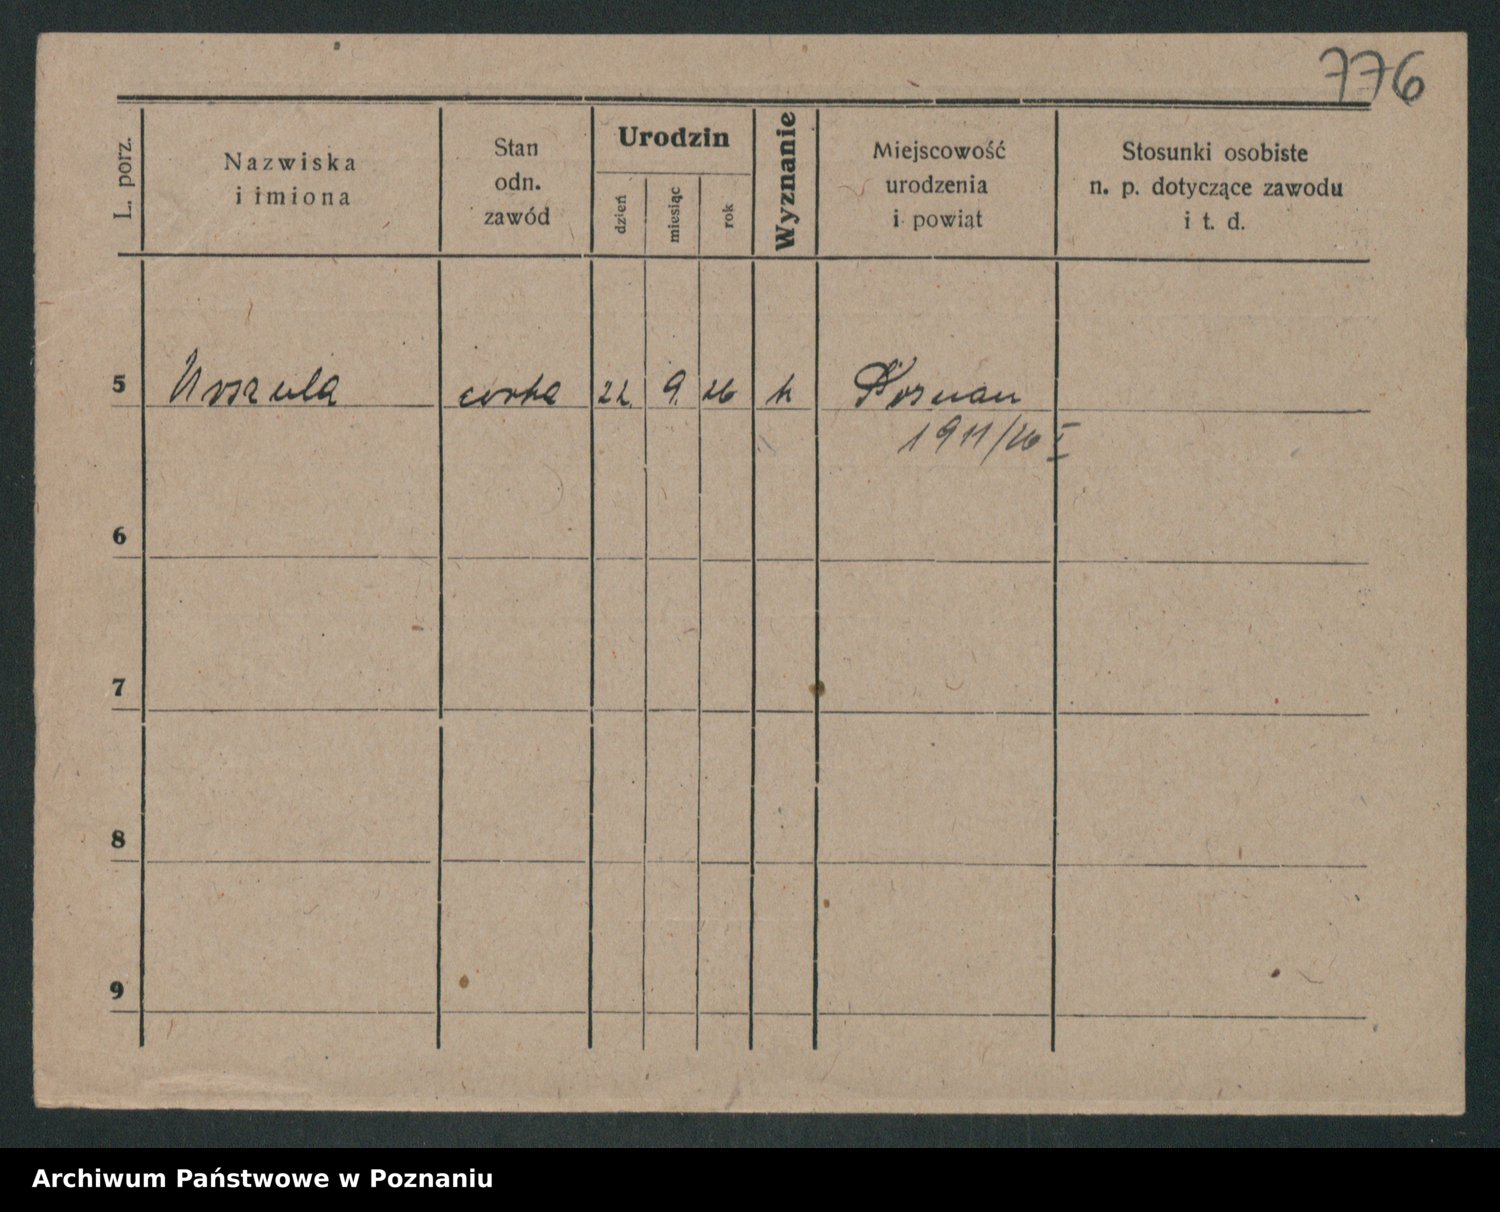 776
L. porz.
Nazwiska
i imiona
Stan
odn.
zawód
Urodzin
dzień
miesiąc
rok
Wyznanie
Miejscowość
urodzenia
i powiat
Stosunki osobiste
n. p. dotyczące zawodu
i t. d.
5 Urszula córka 22 9. 26 k Poznan
1911/26 I
6
7
8
9
Archiwum Państwowe w Poznaniu